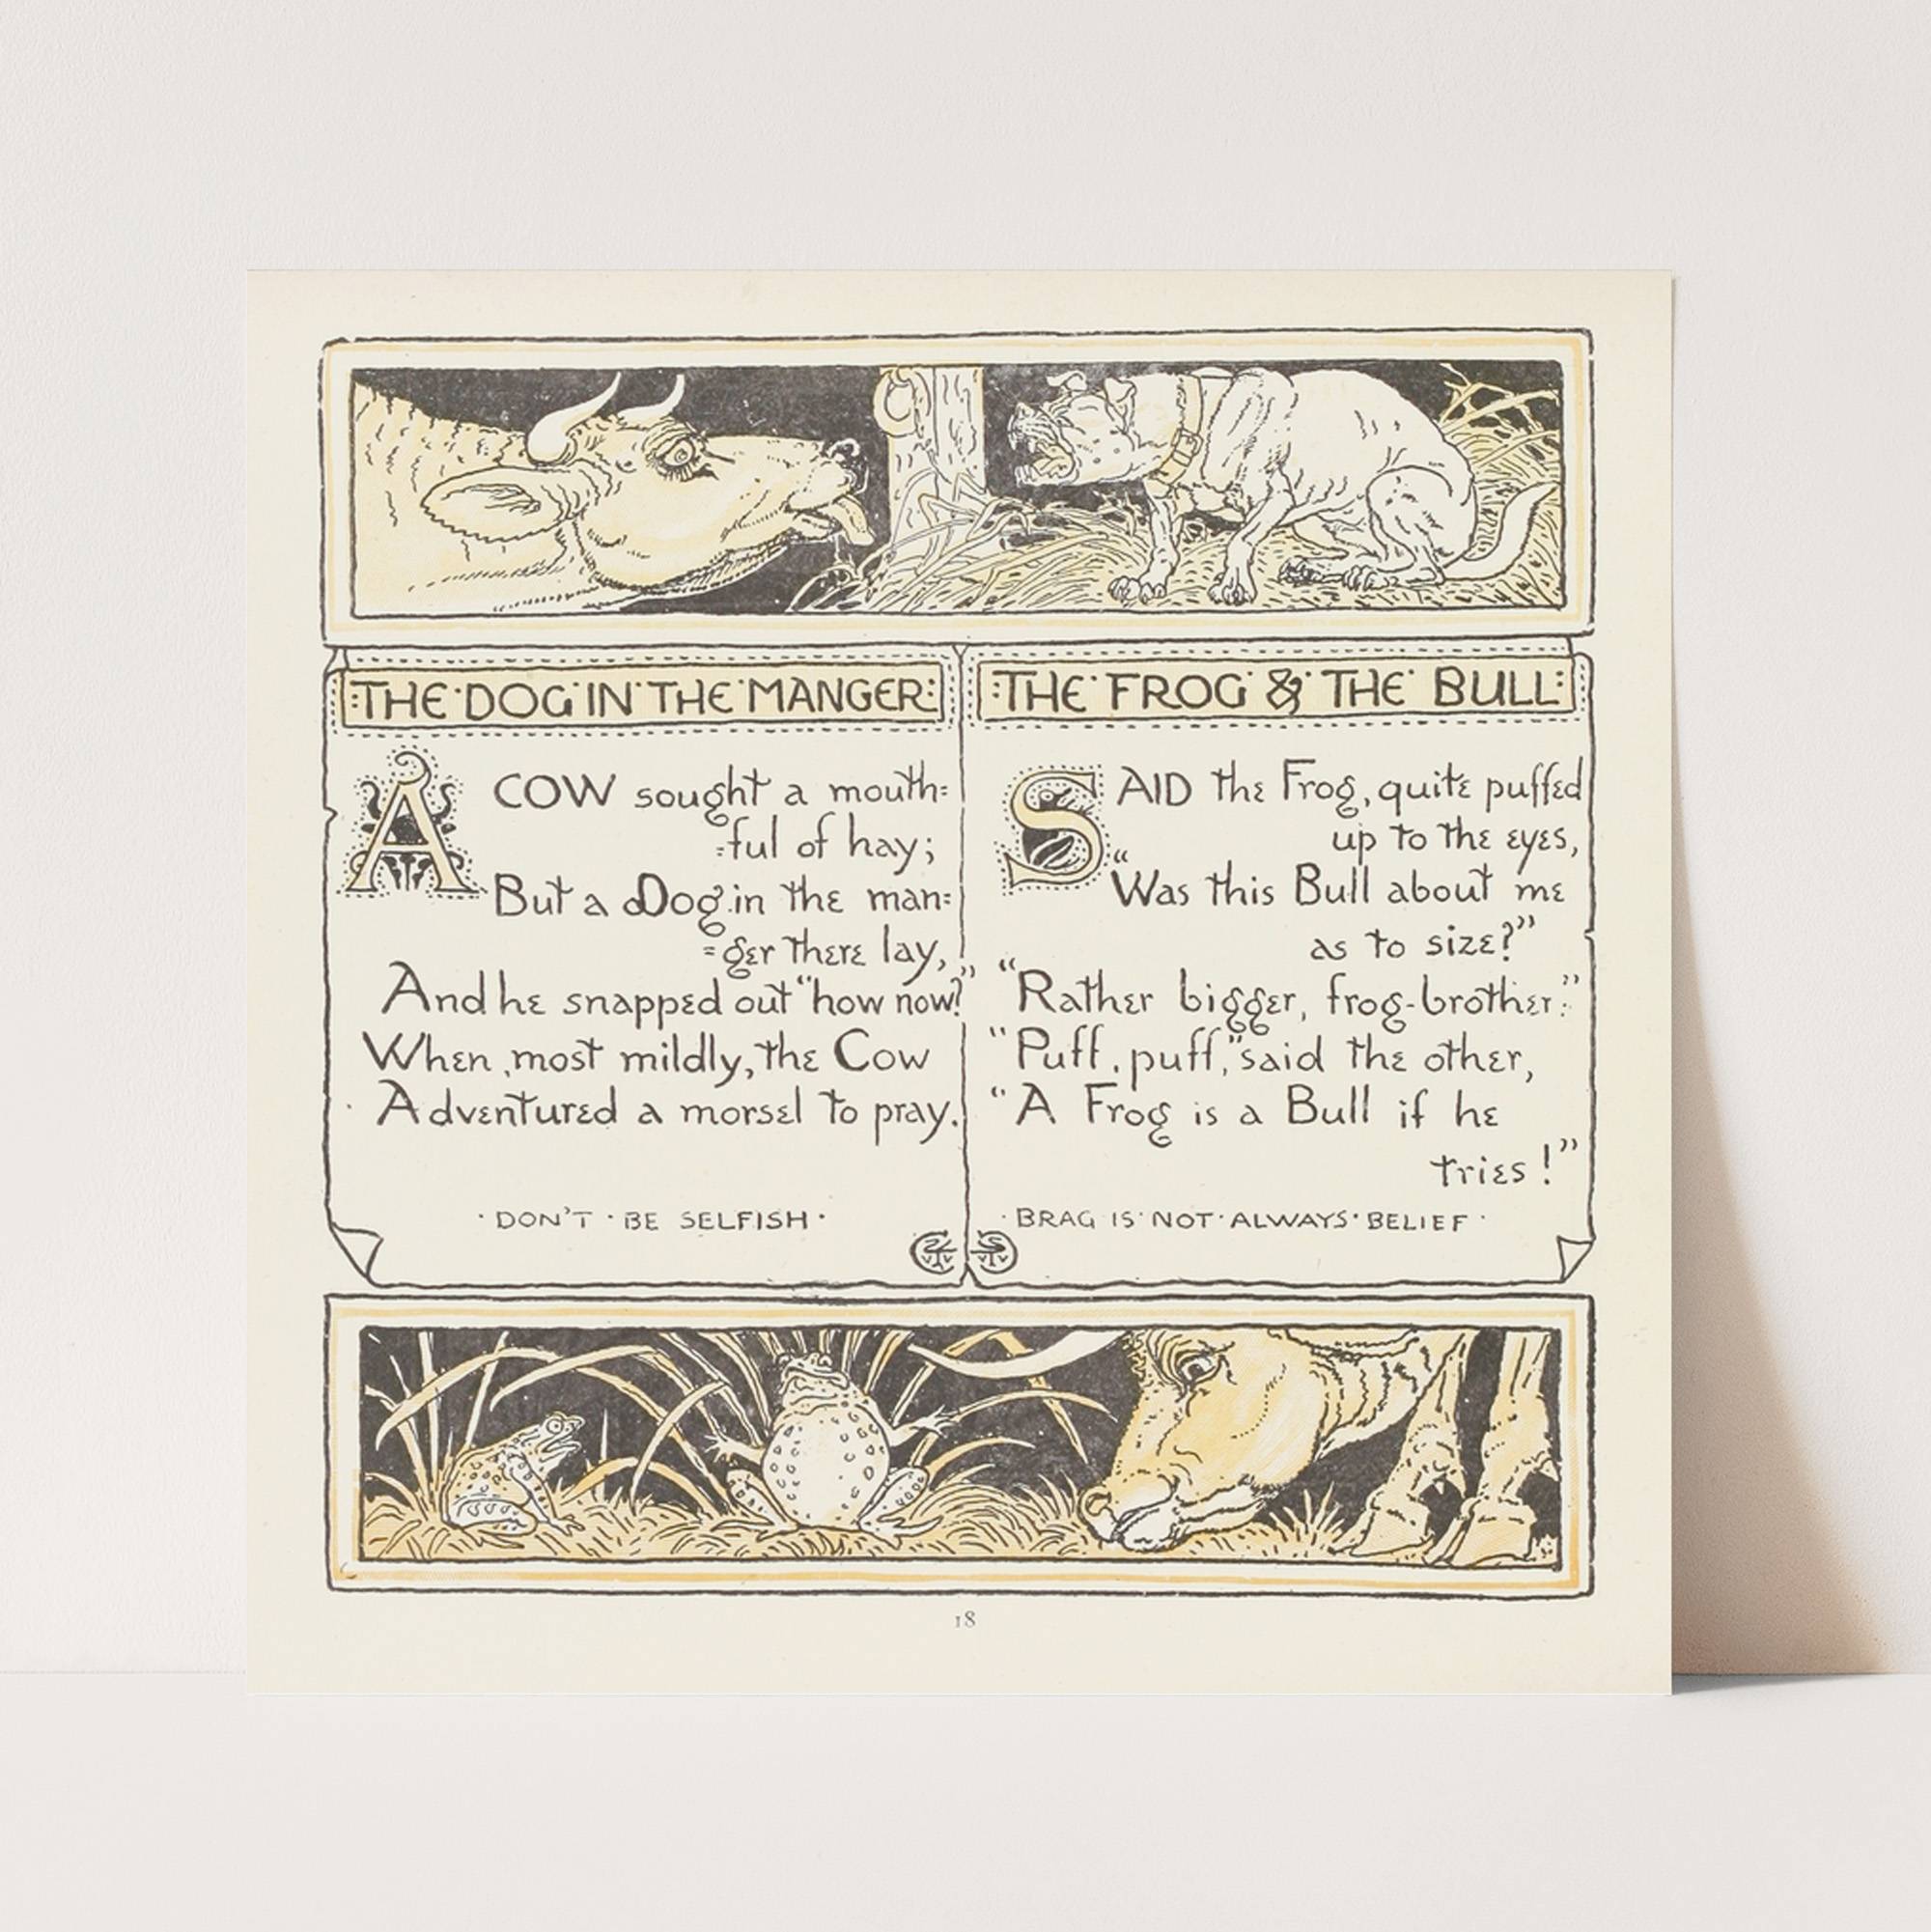 THE·DOG·IN·THE·MANGER:
A COW sought a mouth=
=ful of hay;
But a Dog in the man=
=ger there lay,
And he snapped out "how now?"
When, most mildly, the Cow
Adventured a morsel to pray.
·DON'T·BE SELFISH·
:THE·FROG & THE·BULL:
SAID the Frog, quite puffed
up to the eyes,
"Was this Bull about me
as to size?"
"Rather bigger, frog-brother:"
"Puff, puff," said the other,
"A Frog is a Bull if he
tries!"
·BRAG IS·NOT·ALWAYS·BELIEF·
18